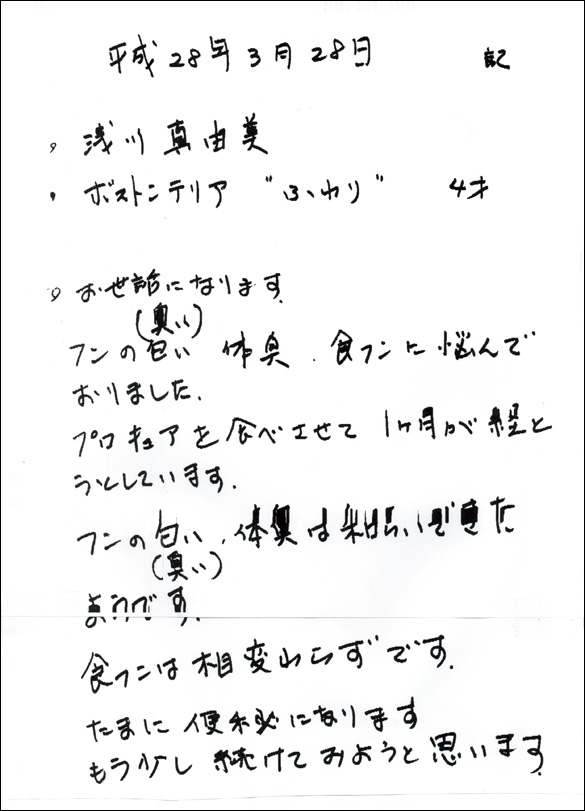 平成28年3月28日 記
・浅川 真由美
・ボストンテリア "ふわり" 4才
・お世話になります。
(臭い)
フンの匂い 体臭、食フンに悩んで
おりました。
プロキュアを食べさせて 1ヶ月が経と
うとしています。
フンの匂い、体臭は和らいできた
(臭い)
ようです。
食フンは相変わらずです。
たまに便秘になります
もう少し続けてみようと思います。